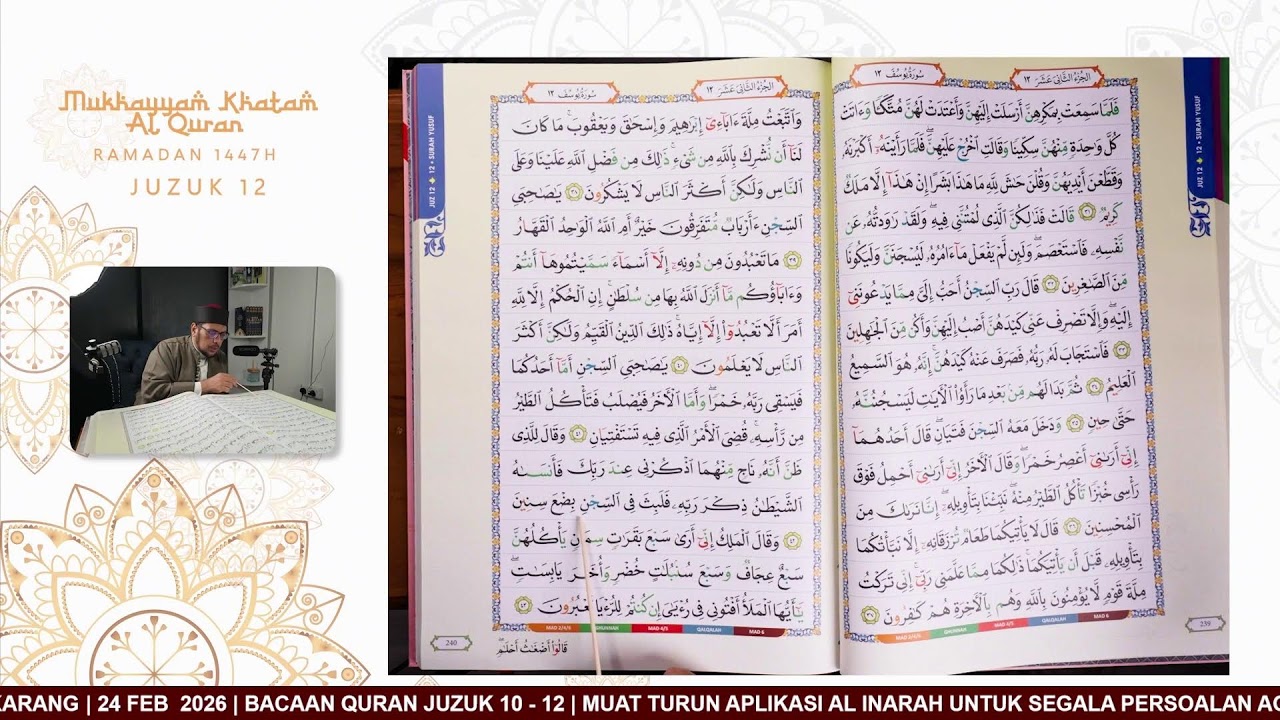 Mukhayyam Khatam
Al Quran
RAMADAN 1447H
JUZUK 12
الجزء الثاني عشر ١٢
سورة يوسف ١٢
JUZ 12 • 12 • SURAH YUSUF
فَلَمَّا سَمِعَتْ بِمَكْرِهِنَّ أَرْسَلَتْ إِلَيْهِنَّ وَأَعْتَدَتْ لَهُنَّ مُتَّكَـًٔا وَءَاتَتْ
كُلَّ وَٰحِدَةٍ مِّنْهُنَّ سِكِّينًا وَقَالَتِ ٱخْرُجْ عَلَيْهِنَّ ۖ فَلَمَّا رَأَيْنَهُۥٓ أَكْبَرْنَهُۥ
وَقَطَّعْنَ أَيْدِيَهُنَّ وَقُلْنَ حَٰشَ لِلَّهِ مَا هَٰذَا بَشَرًا إِنْ هَٰذَآ إِلَّا مَلَكٌ
كَرِيمٌ ٣١ قَالَتْ فَذَٰلِكُنَّ ٱلَّذِى لُمْتُنَّنِى فِيهِ ۖ وَلَقَدْ رَٰوَدتُّهُۥ عَن
نَّفْسِهِۦ فَٱسْتَعْصَمَ ۖ وَلَئِن لَّمْ يَفْعَلْ مَآ ءَامُرُهُۥ لَيُسْجَنَنَّ وَلَيَكُونًا
مِّنَ ٱلصَّٰغِرِينَ ٣٢ قَالَ رَبِّ ٱلسِّجْنُ أَحَبُّ إِلَىَّ مِمَّا يَدْعُونَنِىٓ
إِلَيْهِ ۖ وَإِلَّا تَصْرِفْ عَنِّى كَيْدَهُنَّ أَصْبُ إِلَيْهِنَّ وَأَكُن مِّنَ ٱلْجَٰهِلِينَ
٣٣ فَٱسْتَجَابَ لَهُۥ رَبُّهُۥ فَصَرَفَ عَنْهُ كَيْدَهُنَّ ۚ إِنَّهُۥ هُوَ ٱلسَّمِيعُ
ٱلْعَلِيمُ ٣٤ ثُمَّ بَدَا لَهُم مِّنۢ بَعْدِ مَا رَأَوُا۟ ٱلْـَٔايَٰتِ لَيَسْجُنُنَّهُۥ
حَتَّىٰ حِينٍ ٣٥ وَدَخَلَ مَعَهُ ٱلسِّجْنَ فَتَيَانِ ۖ قَالَ أَحَدُهُمَآ
إِنِّىٓ أَرَىٰنِىٓ أَعْصِرُ خَمْرًا ۖ وَقَالَ ٱلْـَٔاخَرُ إِنِّىٓ أَرَىٰنِىٓ أَحْمِلُ فَوْقَ
رَأْسِى خُبْزًا تَأْكُلُ ٱلطَّيْرُ مِنْهُ ۖ نَبِّئْنَا بِتَأْوِيلِهِۦٓ ۖ إِنَّا نَرَىٰكَ مِنَ
ٱلْمُحْسِنِينَ ٣٦ قَالَ لَا يَأْتِيكُمَا طَعَامٌ تُرْزَقَانِهِۦٓ إِلَّا نَبَّأْتُكُمَا
بِتَأْوِيلِهِۦ قَبْلَ أَن يَأْتِيَكُمَا ۚ ذَٰلِكُمَا مِمَّا عَلَّمَنِى رَبِّىٓ ۚ إِنِّى تَرَكْتُ
مِلَّةَ قَوْمٍ لَّا يُؤْمِنُونَ بِٱللَّهِ وَهُم بِٱلْـَٔاخِرَةِ هُمْ كَٰفِرُونَ ٣٧
MAD 2/4/6 GHUNNAH MAD 4/5 QALQALAH MAD 6
239
الجزء الثاني عشر ١٢
سورة يوسف ١٢
JUZ 12 • 12 • SURAH YUSUF
وَٱتَّبَعْتُ مِلَّةَ ءَابَآءِىٓ إِبْرَٰهِيمَ وَإِسْحَٰقَ وَيَعْقُوبَ ۚ مَا كَانَ
لَنَآ أَن نُّشْرِكَ بِٱللَّهِ مِن شَىْءٍ ۚ ذَٰلِكَ مِن فَضْلِ ٱللَّهِ عَلَيْنَا وَعَلَى
ٱلنَّاسِ وَلَٰكِنَّ أَكْثَرَ ٱلنَّاسِ لَا يَشْكُرُونَ ٣٨ يَٰصَٰحِبَىِ
ٱلسِّجْنِ ءَأَرْبَابٌ مُّتَفَرِّقُونَ خَيْرٌ أَمِ ٱللَّهُ ٱلْوَٰحِدُ ٱلْقَهَّارُ
٣٩ مَا تَعْبُدُونَ مِن دُونِهِۦٓ إِلَّآ أَسْمَآءً سَمَّيْتُمُوهَآ أَنتُمْ
وَءَابَآؤُكُم مَّآ أَنزَلَ ٱللَّهُ بِهَا مِن سُلْطَٰنٍ ۚ إِنِ ٱلْحُكْمُ إِلَّا لِلَّهِ
أَمَرَ أَلَّا تَعْبُدُوٓا۟ إِلَّآ إِيَّاهُ ۚ ذَٰلِكَ ٱلدِّينُ ٱلْقَيِّمُ وَلَٰكِنَّ أَكْثَرَ
ٱلنَّاسِ لَا يَعْلَمُونَ ٤٠ يَٰصَٰحِبَىِ ٱلسِّجْنِ أَمَّآ أَحَدُكُمَا
فَيَسْقِى رَبَّهُۥ خَمْرًا ۖ وَأَمَّا ٱلْـَٔاخَرُ فَيُصْلَبُ فَتَأْكُلُ ٱلطَّيْرُ
مِن رَّأْسِهِۦ ۚ قُضِىَ ٱلْأَمْرُ ٱلَّذِى فِيهِ تَسْتَفْتِيَانِ ٤١ وَقَالَ لِلَّذِى
ظَنَّ أَنَّهُۥ نَاجٍ مِّنْهُمَا ٱذْكُرْنِى عِندَ رَبِّكَ فَأَنسَىٰهُ
ٱلشَّيْطَٰنُ ذِكْرَ رَبِّهِۦ فَلَبِثَ فِى ٱلسِّجْنِ بِضْعَ سِنِينَ
٤٢ وَقَالَ ٱلْمَلِكُ إِنِّىٓ أَرَىٰ سَبْعَ بَقَرَٰتٍ سِمَانٍ يَأْكُلُهُنَّ
سَبْعٌ عِجَافٌ وَسَبْعَ سُنۢبُلَٰتٍ خُضْرٍ وَأُخَرَ يَابِسَٰتٍ ۖ
يَٰٓأَيُّهَا ٱلْمَلَأُ أَفْتُونِى فِى رُءْيَٰىَ إِن كُنتُمْ لِلرُّءْيَا تَعْبُرُونَ ٤٣
MAD 2/4/6 GHUNNAH MAD 4/5 QALQALAH MAD 6
240
قَالُوٓا۟ أَضْغَٰثُ أَحْلَٰمٍ
KARANG | 24 FEB 2026 | BACAAN QURAN JUZUK 10 - 12 | MUAT TURUN APLIKASI AL INARAH UNTUK SEGALA PERSOALAN AG